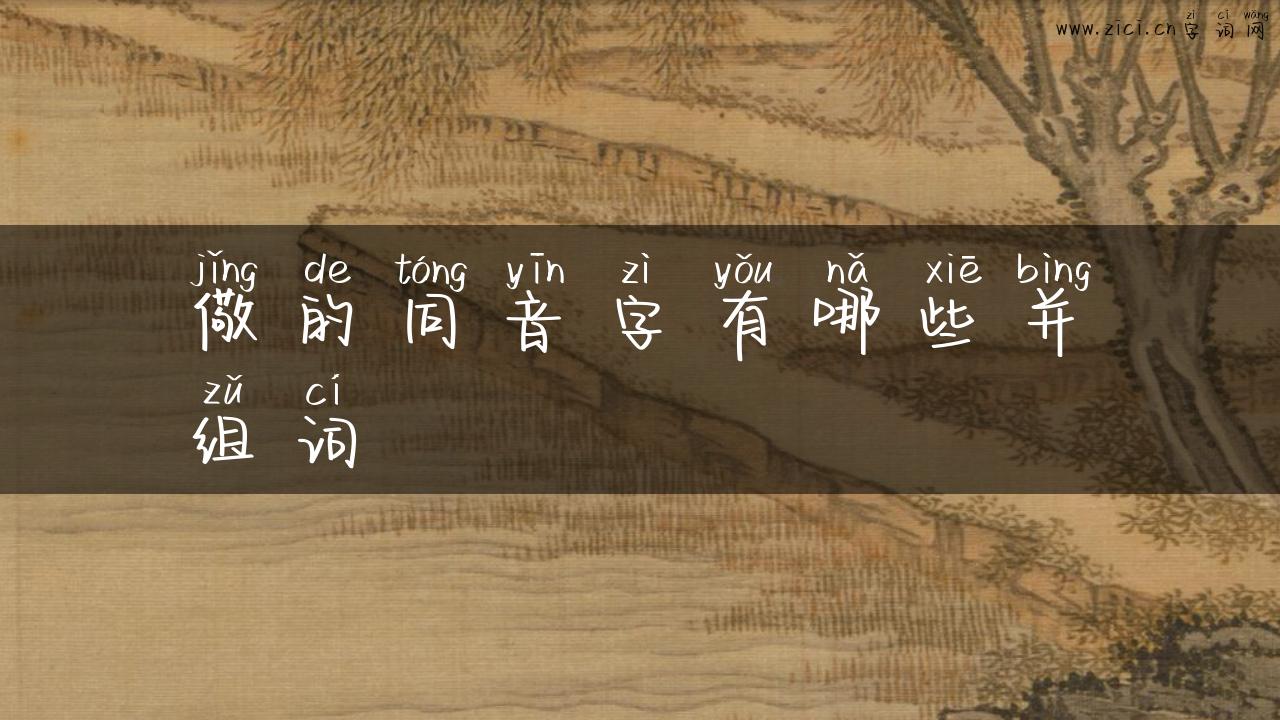 zì cí wǎng
www.zici.cn字词网
jǐng de tóng yīn zì yǒu nǎ xiē bìng
儆的同音字有哪些并
zǔ cí
组词